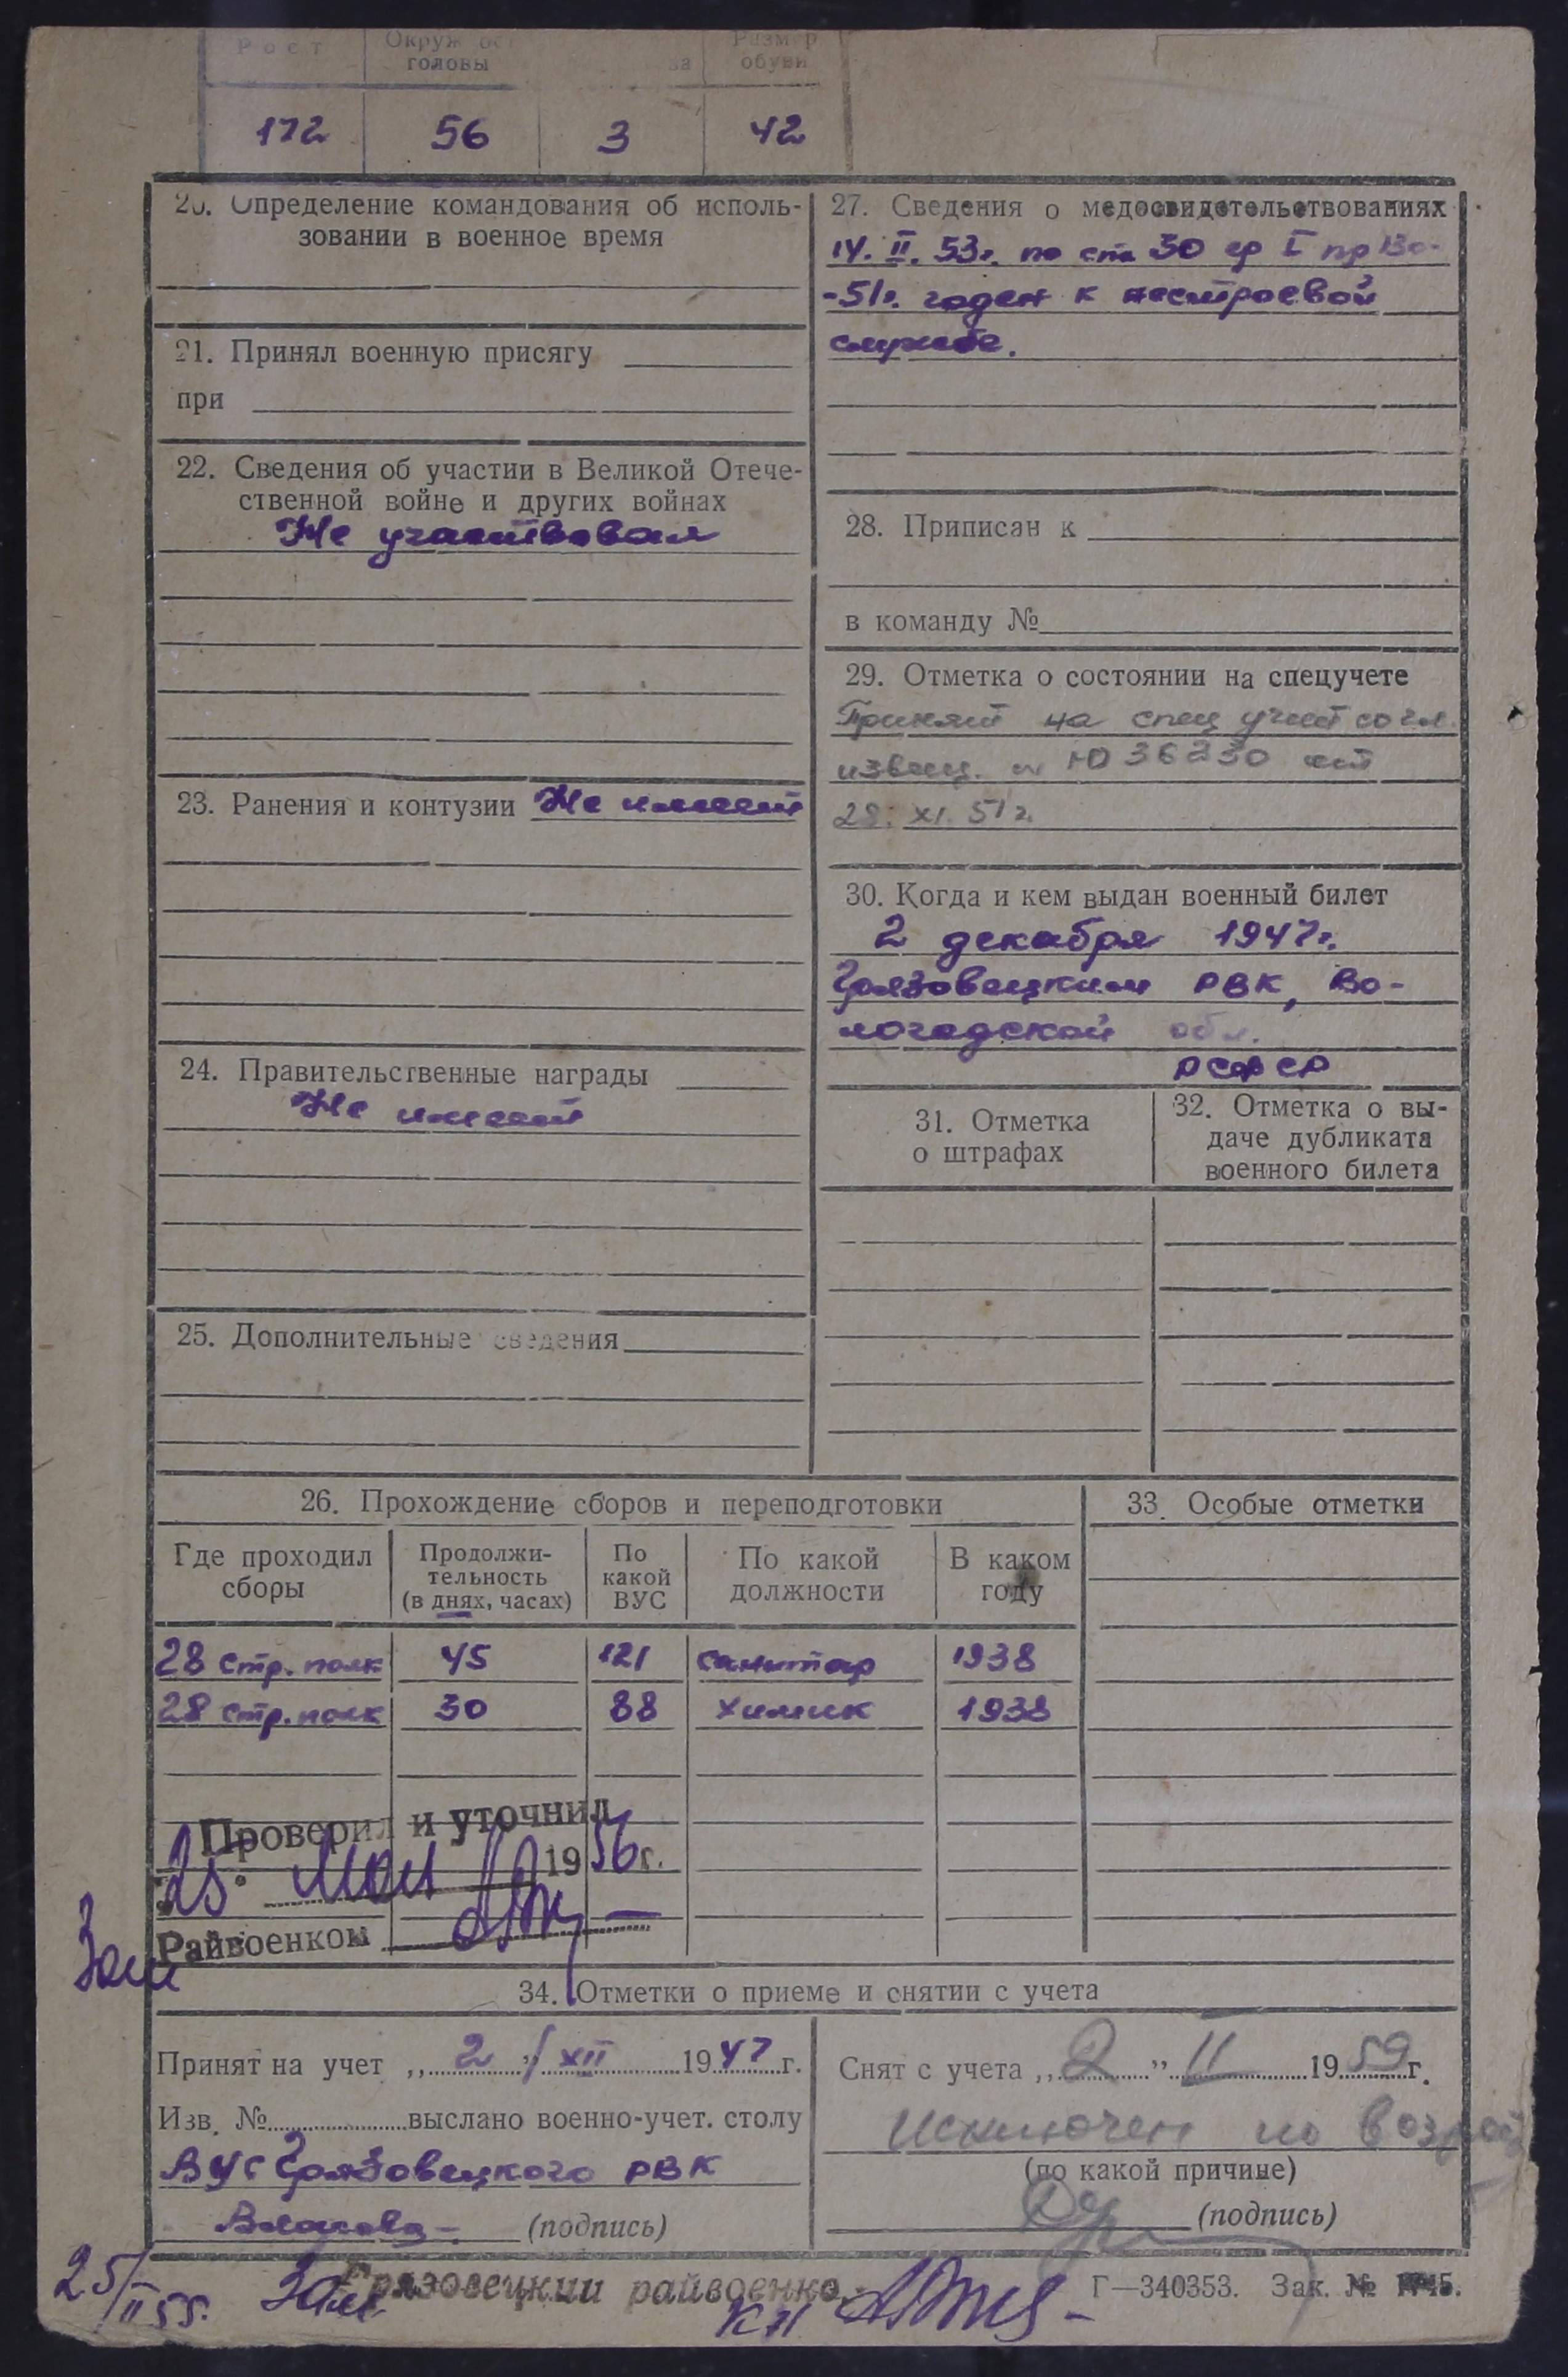 Рост Окруж ос Размер
головы за обуви
172 56 3 42
20. Определение командования об исполь-
зовании в военное время
21. Принял военную присягу
при
22. Сведения об участии в Великой Отече-
ственной войне и других войнах
Не участвовал
23. Ранения и контузии Не имеет
24. Правительственные награды
Не имеет
25. Дополнительные сведения
27. Сведения о медосвидетельствованиях
14. II. 53г. по ст. 30 гр I пр
-51г. годен к нестроевой
службе.
28. Приписан к
в команду №
29. Отметка о состоянии на спецучете
Принят на спец учет согл.
извещ. Ю 36230 от
28. XI. 51г.
30. Когда и кем выдан военный билет
2 декабря 1947г.
Грязовецким РВК, Во-
логодской обл.
РСФСР
31. Отметка
о штрафах
32. Отметка о вы-
даче дубликата
военного билета
26. Прохождение сборов и переподготовки
33. Особые отметки
Где проходил
сборы
Продолжи-
тельность
(в днях, часах)
По
какой
ВУС
По какой
должности
В каком
году
28 стр. полк 45 121 санитар 1938
28 стр. полк 30 88 химик 1938
Проверил и уточнил
25. мая 1956г.
Зам Райвоенком
34. Отметки о приеме и снятии с учета
Принят на учет „2" XII 1947г.
Изв. № выслано военно-учет. столу
ВУС Грязовецкого РВК
(подпись)
Снят с учета „2" II 1959г.
Исключен по возраст
(по какой причине)
(подпись)
25/II 55г. Зам. Грязовецкий райвоенко
к-н
Г—340353. Зак. №